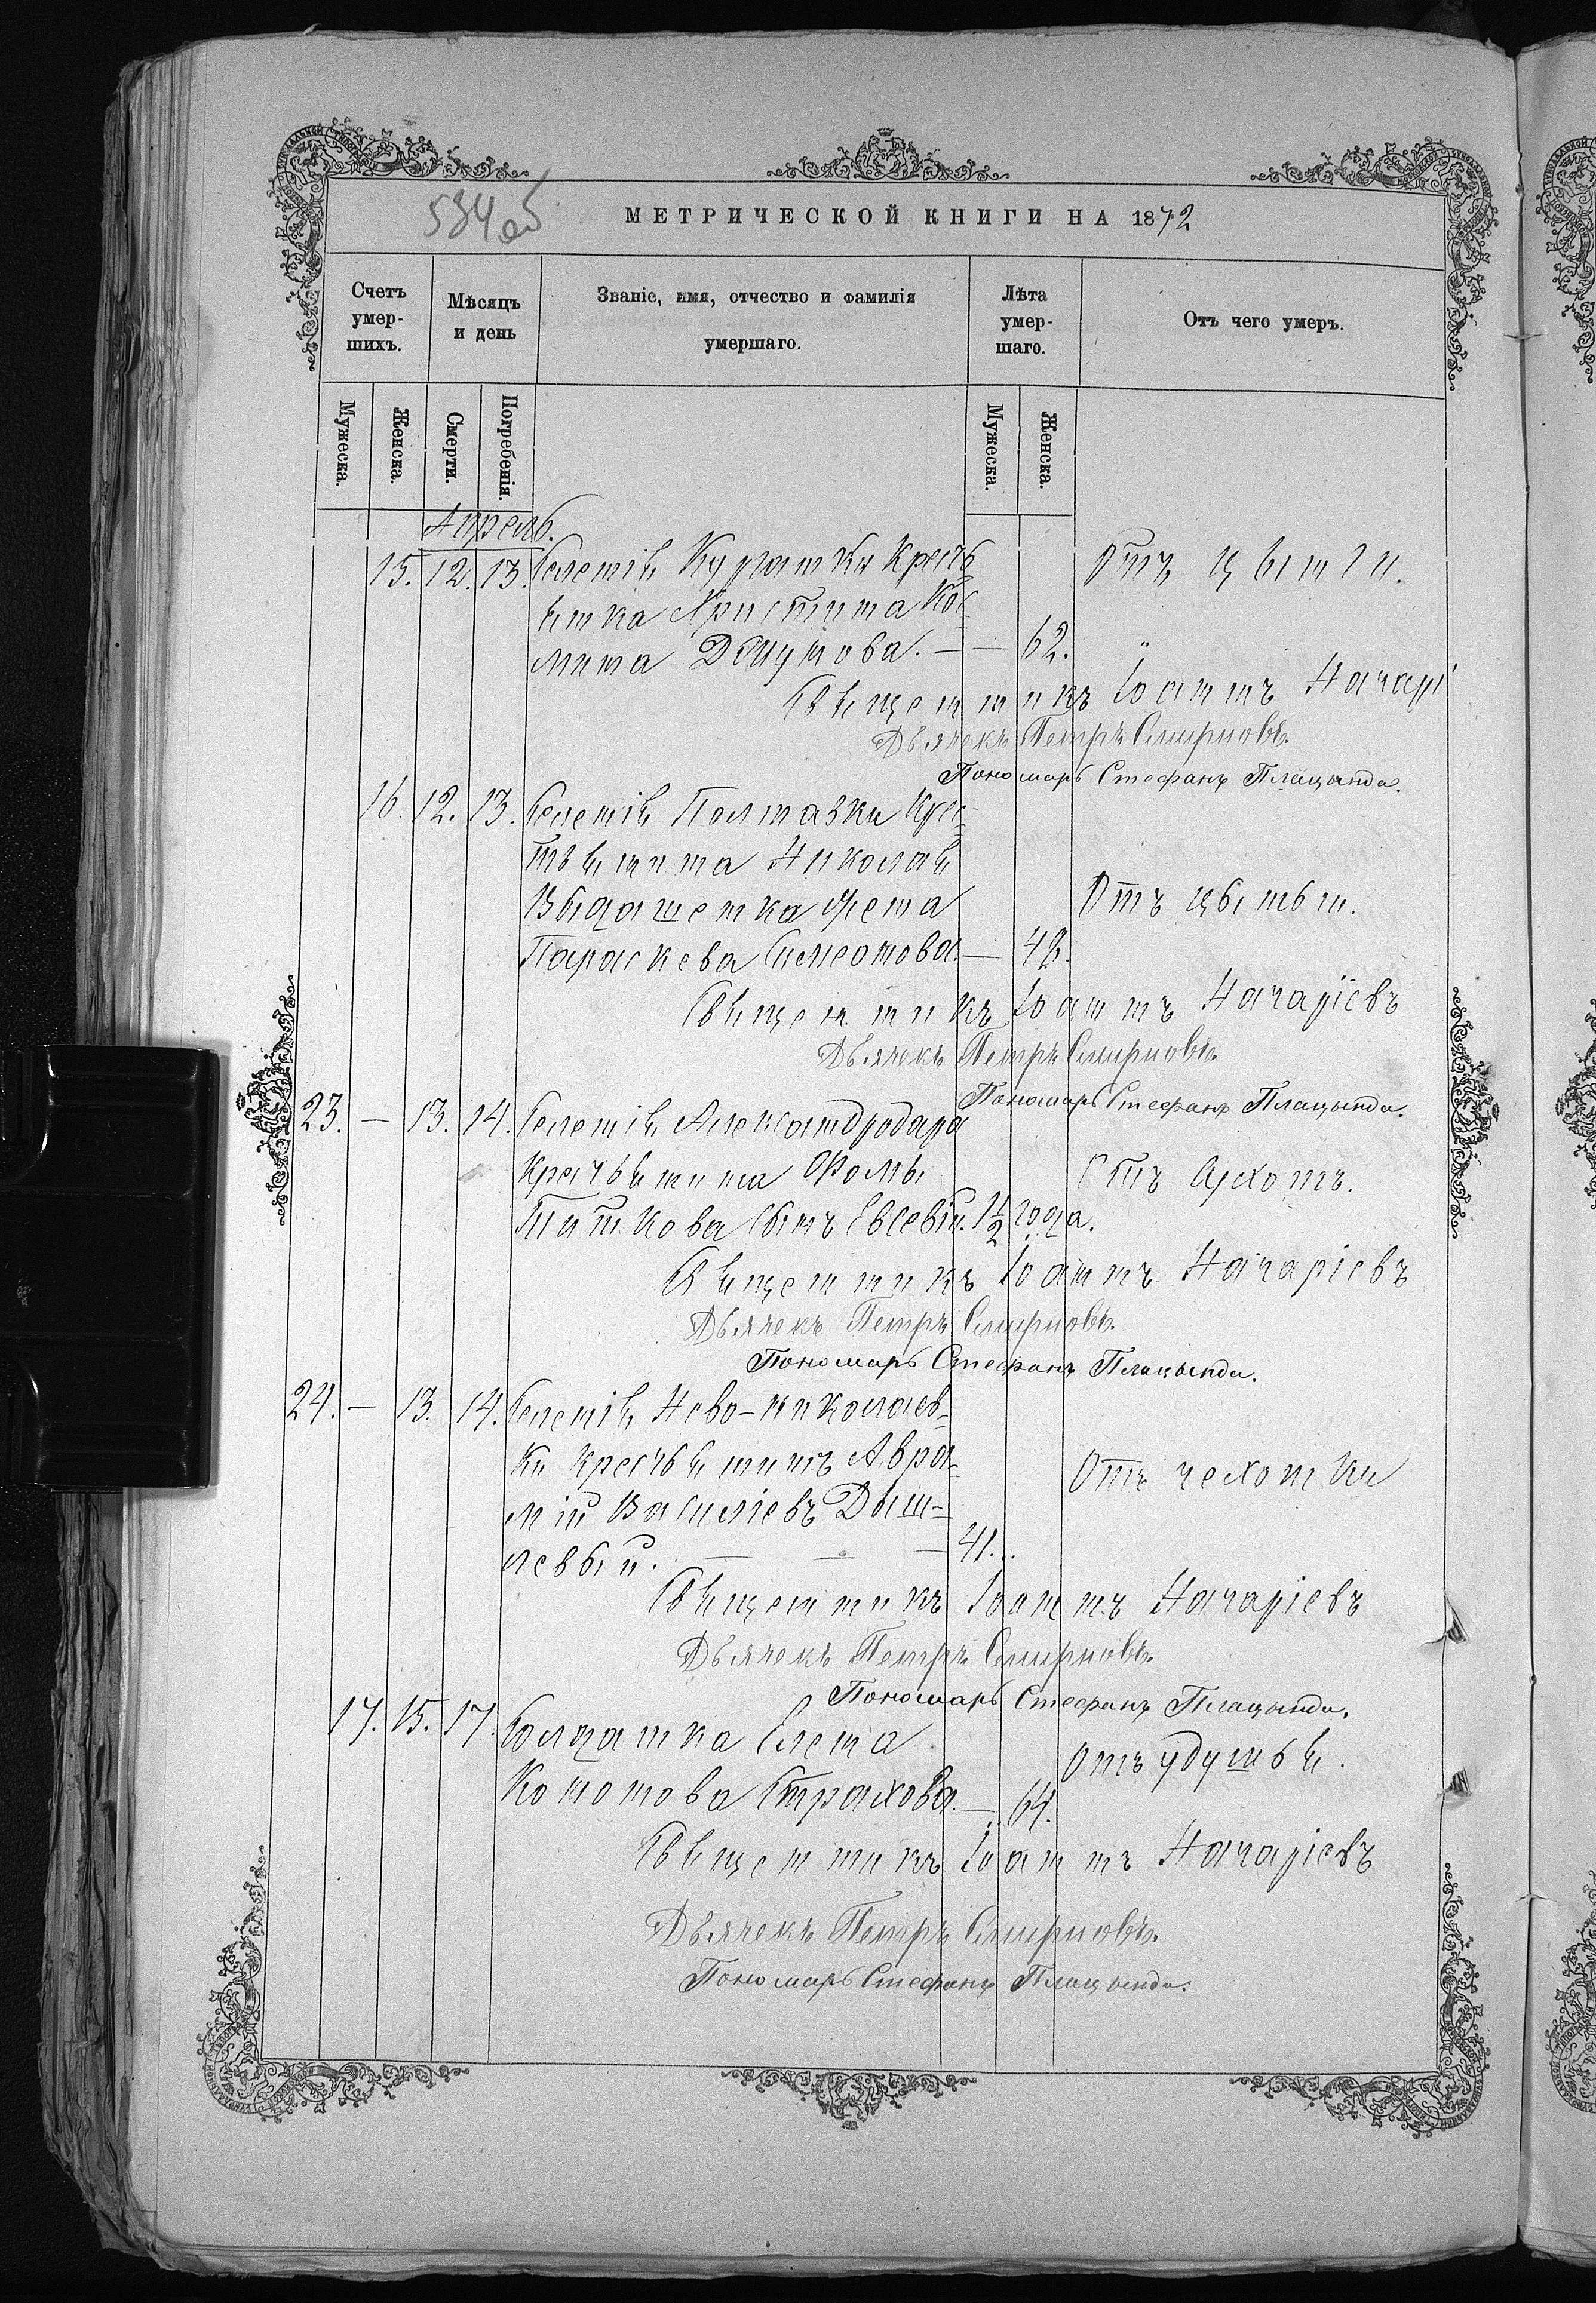 534 об
МЕТРИЧЕСКОЙ КНИГИ НА 1872
Счетъ умер-шихъ.
Мѣсяцъ и день
Званіе, имя, отчество и фамилія умершаго.
Лѣта умер-шаго.
Отъ чего умеръ.
Мужеска.
Женска.
Смерти.
Погребенія.
Мужеска.
Женска.
Апрель.
15. 12. 13. Селенія Кураки Кресть Отъ цынги.
янка Христина Кос-
мина — — 62. "
Священникъ Іоаннъ Начарі
Дьячекъ Петръ Смирновъ.
Пономарь Стефанъ Плацында.
16. 12. 13. Селенія Полтавки Крес-
тьянина Николая
жена Отъ цынги.
Параскева Симеонова. — 48.
Священникъ Іоаннъ Начаріевъ
Дьячекъ Петръ Смирновъ
Пономарь Стефанъ Плацында.
23. — 13. 14. Селенія Александродара
крестьянина Фомы Отъ
Титкова сынъ Евсевій. 1½ года.
Священникъ Іоаннъ Начаріевъ
Дьячекъ Петръ Смирновъ.
Пономарь Стефанъ Плацында.
24. — 13. 14. Селенія Ново-николаев-
ки крестьянинъ Авра- Отъ чехотки
мій Василіевъ Дыш-
левый. — — — 41.
Священникъ Іоаннъ Начаріевъ
Дьячекъ Петръ Смирновъ
Пономарь Стефанъ Плацында.
17. 15. 17. Солдатка Елена Отъ удушья.
Кононова Страхова. — 64.
Священникъ Іоаннъ Начаріевъ
Дьячекъ Петръ Смирновъ.
Пономарь Стефанъ Плацында.